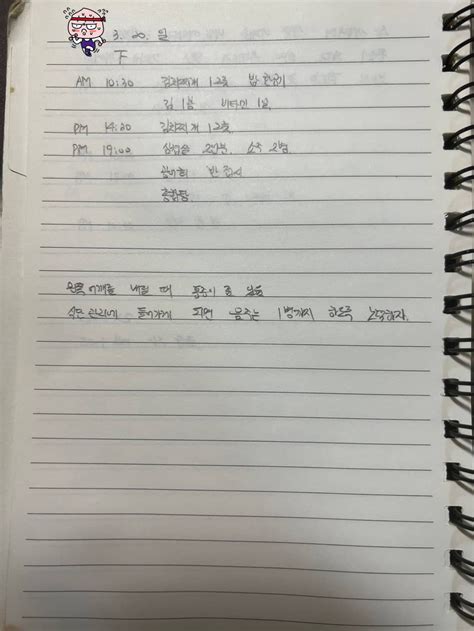 3. 20. 일
下
AM 10:30 김치찌개 1그릇 밥 한공기
김 1봉 비타민 1알
PM 14:30 김치찌개 1그릇
PM 19:00 삼겹살 2인분, 소주 2병
반 접시
왼쪽 어깨를 내릴 때 통증이 좀 있음
식단 관리에 들어가게 되면 음주는 1병까지 하도록 노력하자.